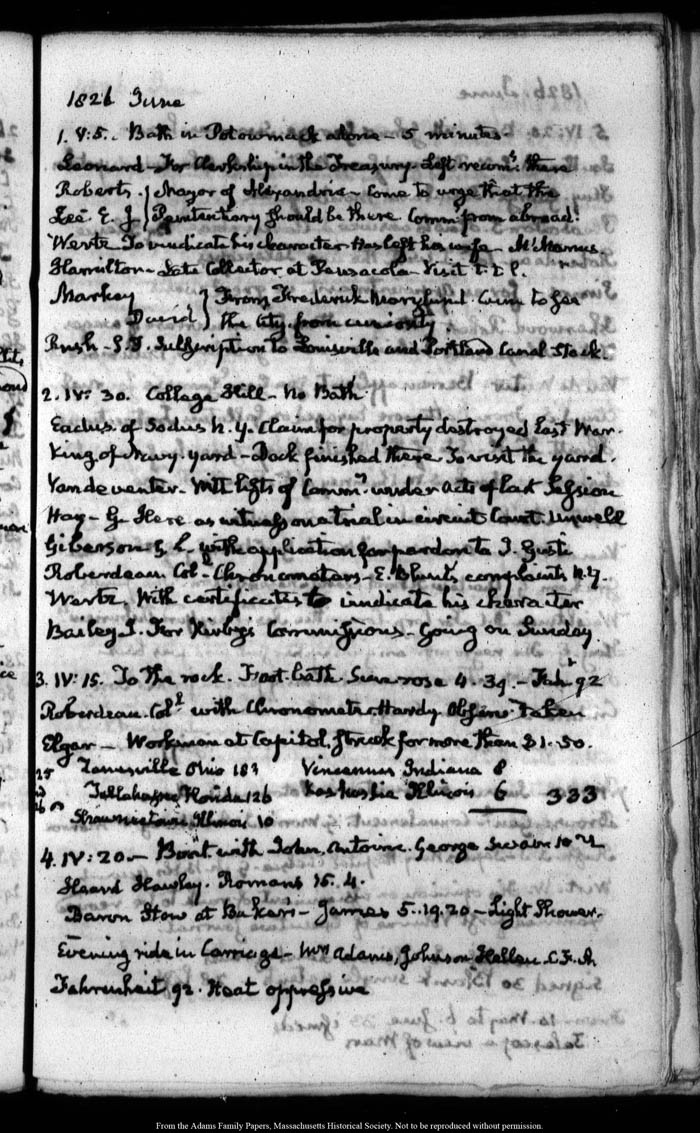 1826 June
1. V:5. Bath in Potowmack alone - 5 minutes -
Leonard - For Clerkship in the Treasury. Left recomns. there
Roberts. } Mayor of Alexandria - Come to urge that the
Lee E. J } Penitentiary should be there. Commn from abroad.
Wertz To vindicate his character. Has left his wife - McManus
Hamilton - Late Collector at Pensacola - Visit t.t.l.
Markey } From Frederick Maryland. Come to see
David } the City from curiosity.
Rush - S.T. Subscription to Louisville and Portland Canal Stock.
2. IV: 30. College Hill - No Bath
of Sodus N.Y. Claim for property destroyed last War.
King of Navy-yard - Dock finished there. To visit the yard.
Vandeventer. With lists of Commns under Acts of last Session
Hay - G. Here as witness on a trial in circuit Court. Unwell
Giberson G. L. with application for pardon to J.
Roberdeau Coll. Chronometers - E. Blunt's complaints N.Y.
Wertz. With certificates to vindicate his character
Bailey J. For Kirby's Commissions - Going on Sunday.
3. IV: 15. To the rock. Foot-bath. Sun rose 4. 39. - Fahrt 92
Roberdeau. Coll with Chronometer. Hardy. Taken
Elgar - Workmen at Capitol, struck for more than $1.50.
Zanesville Ohio 183 Vincennes Indiana 8
Tallahassee Florida 126 Kaskaskia Illinois 6 333
Shawneetown Illinois 10
4. IV: 20 - Boat with John, Antoine. George swam
Heard Hawley. Romans 15. 4.
Baron Stow at Baker's - James 5..19.20 - Light Shower.
Evening ride in Carriage - Mrs Adams, Johnson Hellen. C.F.A
Fahrenheit 92. Heat oppressive
From the Adams Family Papers, Massachusetts Historical Society. Not to be reproduced without permission.